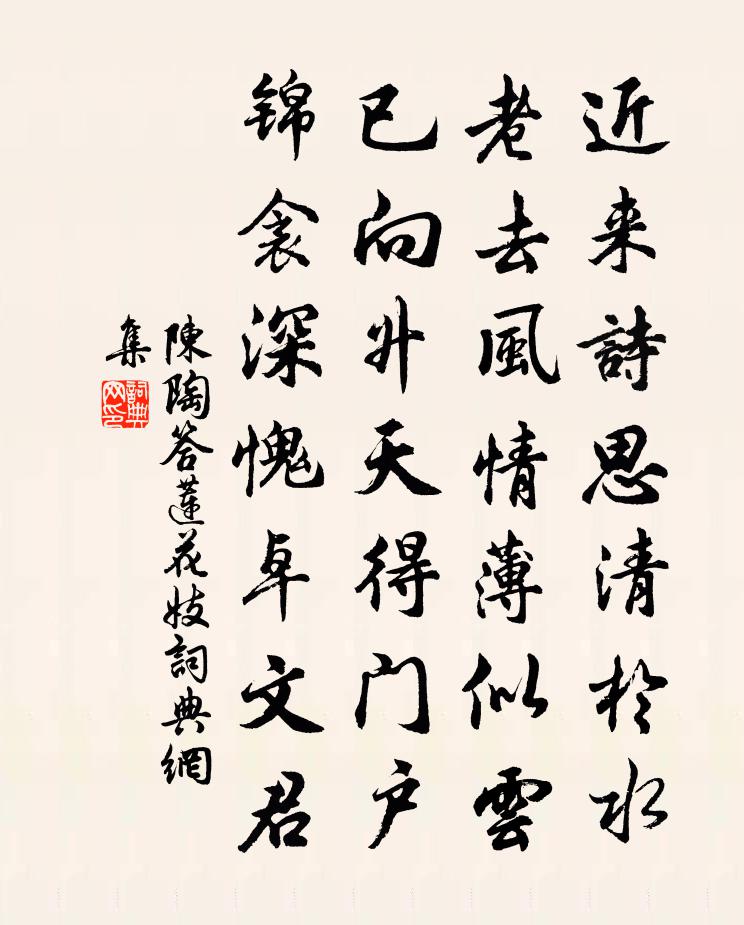 近来詩思清於水
老去風情薄似雲
已向升天得门户
锦衾深愧卓文君
陳陶答蓮花妓詞典網
集
詞典
网印